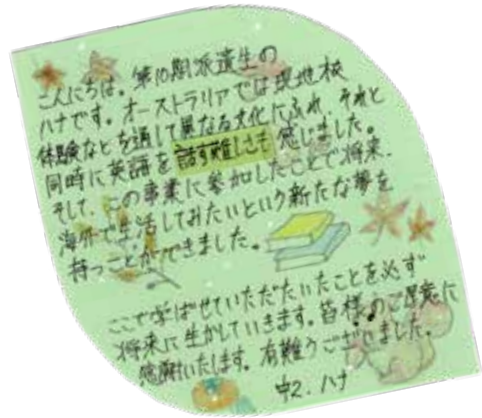 こんにちは。第10期派遣生の
ハナです。オーストラリアでは現地校
体験などを通して異なる文化にふれ、それと
同時に英語を話す難しさも感じました。
そして、この事業に参加したことで将来、
海外で生活してみたいという新たな夢を
持つことができました。
ここで学ばせていただたいたことを必ず
将来に生かしていきます。皆様のご厚意に
感謝いたします。有難うございました。
中2.ハナ